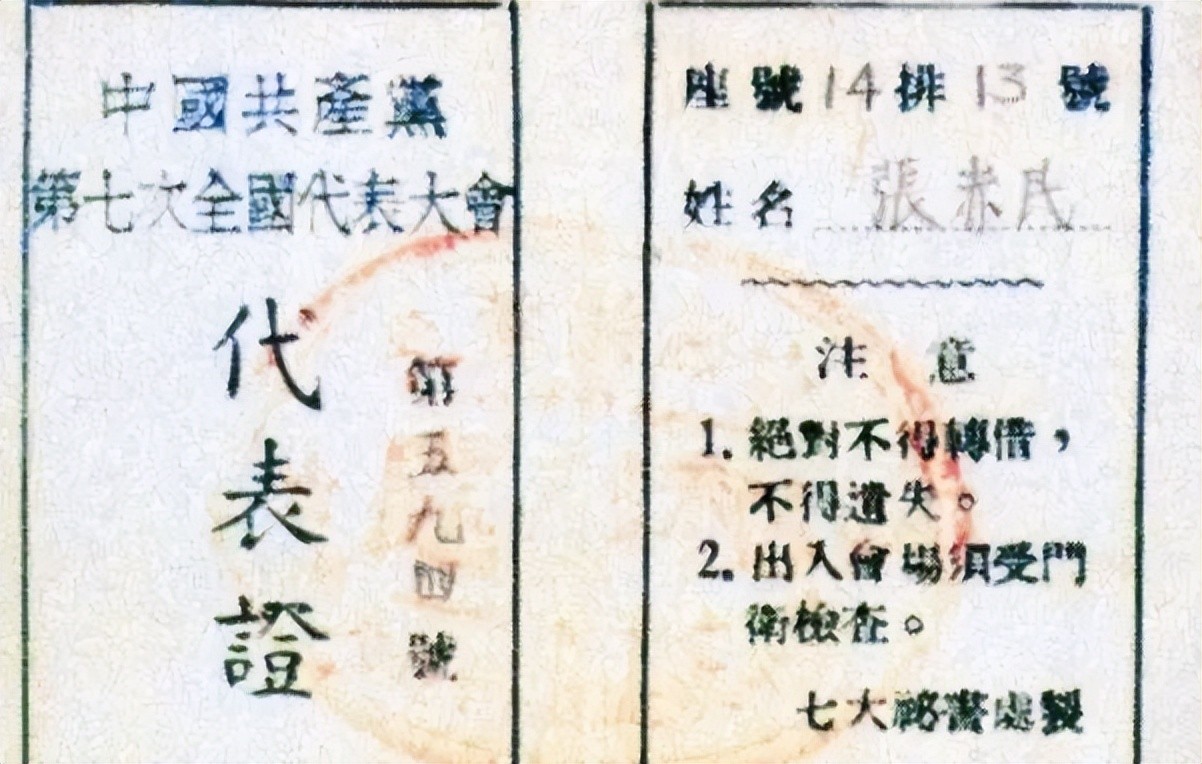 中國共產黨
第七次全國代表大會
代表證
第五九四號
座號14排13號
姓名 張赤民
注意
1. 絕對不得轉借，
不得遺失。
2. 出入會場須受門
衛檢查。
七大祕書處製